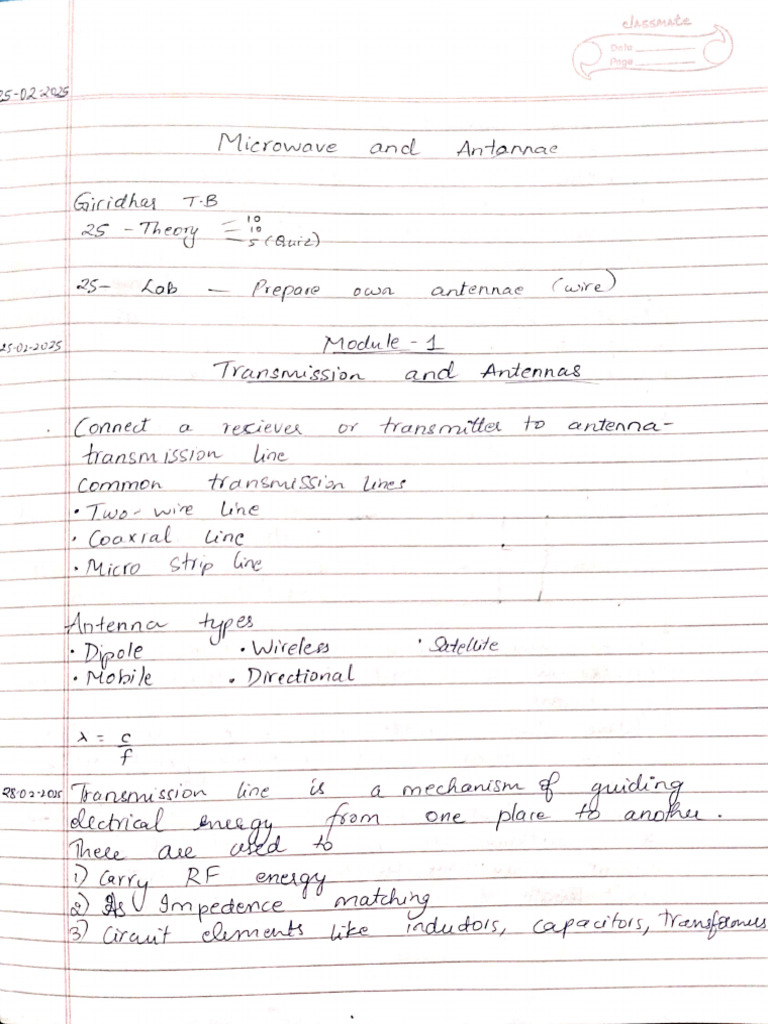 classmate
Date
Page
25-02-2025
Microwave and Antannae
Giridhar T.B
25 - Theory = 10
10
5 (Quiz)
25- Lab - Prepare own antennae (wire)
25-02-2025 Module - 1
Transmission and Antennas
Connect a reciever or transmitter to antenna-
transmission line
Common transmission lines
• Two-wire line
• Coaxial line
• Micro strip line
Antenna types
• Dipole • Wireless • Satellite
• Mobile • Directional
λ = c/f
28-02-2025 Transmission line is a mechanism of guiding
electrical energy from one place to another.
There are used to
1) Carry RF energy
2) As Impedence matching
3) Circuit elements like inductors, capacitors, transformers